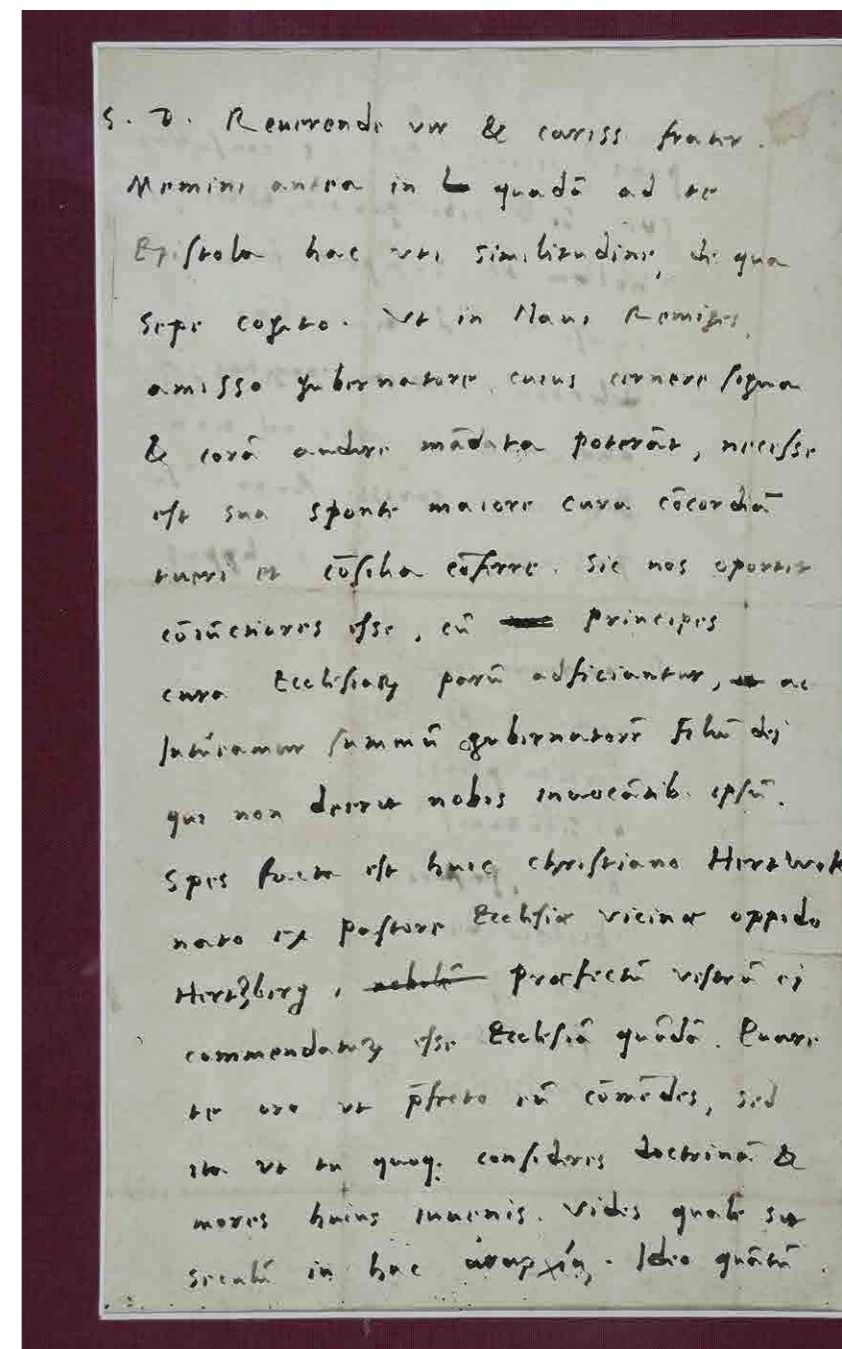 S. D. Reuerende vir & cariss frater.
Memini antea in quadā ad te
Epistola hac vti similitudine, de qua
sepe cogito. Vt in Naui Remiges,
amisso gubernatore, cuius cernere signa
& corā audire mādata poterāt, necesse
est sua sponte maiore cura cōcordiā
tueri et cōsilia cōferre. Sic nos oportet
cōiūctiores esse, cū principes
cura Ecclesiaꝝ parū adficiantur, ac
Intueamur summū gubernatorē Filiū dei
qui non deerit nobis invocātib. ipsū.
Spes facta est huic christiano Hertwok
nato ex pastore Ecclesiæ vicinæ oppido
Hertzberg, præfectū vestrū ei
commendaturꝝ esse Ecclesiā quādā. Quare
te oro vt p̄fecto eū cōmēdes, sed
ita vt tu quoq; consideres doctrinā &
mores huius iuuenis. Vides quale sit
seculū in hac ἀναρχίᾳ. Ideo quātū